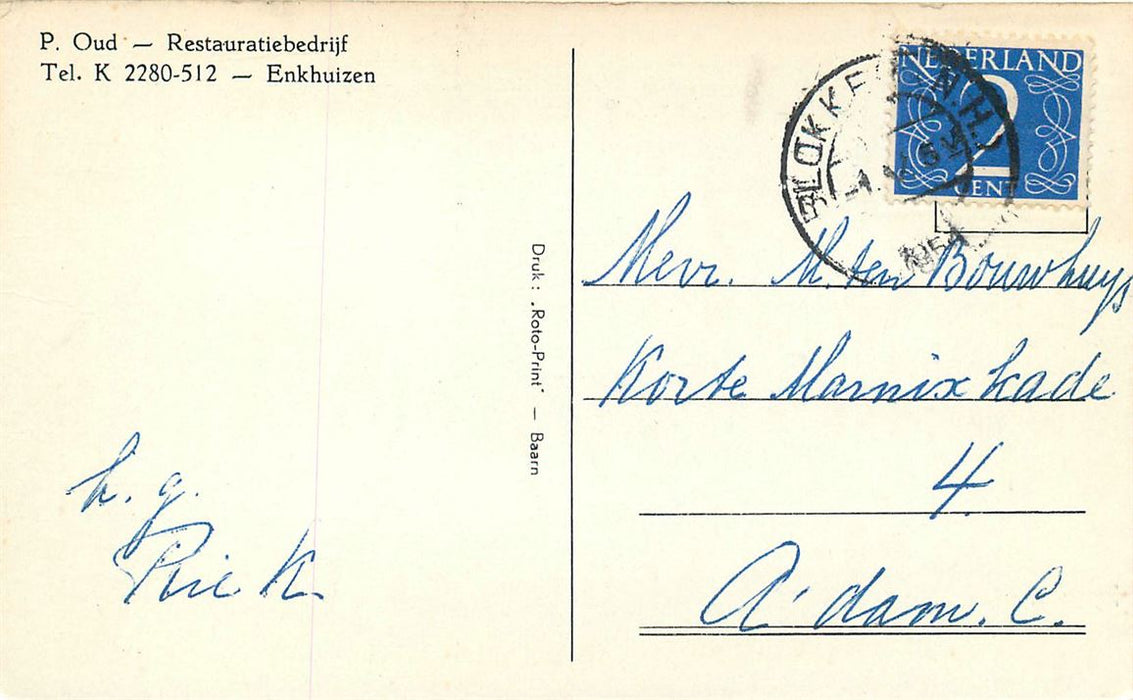 P. Oud — Restauratiebedrijf
Tel. K 2280-512 — Enkhuizen
h. g.
Rie K.
Druk: „Roto-Print" — Baarn
NEDERLAND
2
CENT
BLOKKER N.H.
Mevr. M. ten Bouwhuys
Korte Marnix kade
4.
A'dam. C.